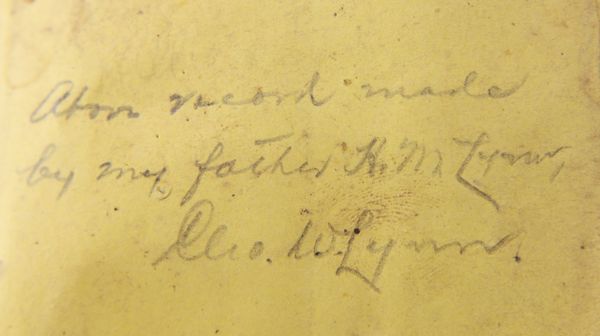 Above record made
by my father H. M. Lynn,
Geo. W. Lynn.